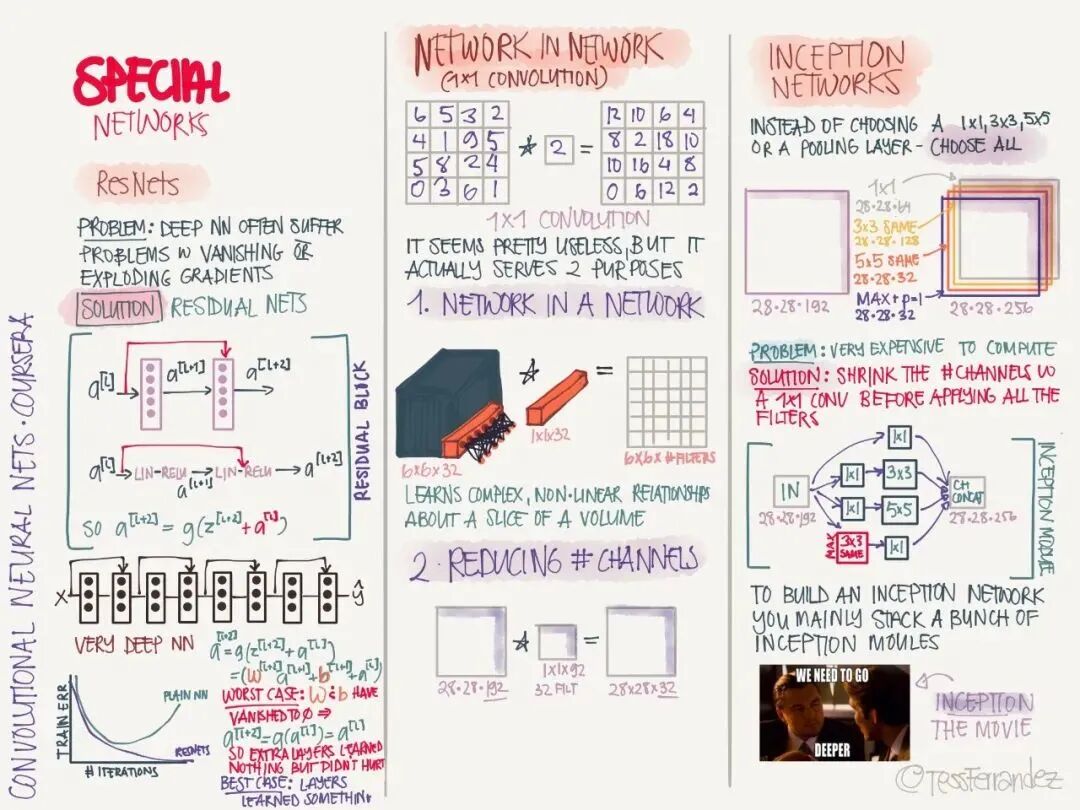 CONVOLUTIONAL NEURAL NETS · COURSERA
SPECIAL
NETWORKS
ResNets
PROBLEM: DEEP NN OFTEN SUFFER
PROBLEMS W VANISHING OR
EXPLODING GRADIENTS
SOLUTION RESIDUAL NETS
a[l] a[l+1] a[l+2]
a[l] LIN-RELU → LIN-RELU → a[l+2]
a[l+1]
SO a[l+2] = g(z[l+2] + a[l])
RESIDUAL BLOCK
X ŷ
VERY DEEP NN
a[l+2] = g(z[l+2] + a[l])
= (W[l+2] a[l+1] + b[l+1] + a[l])
WORST CASE: W & b HAVE
VANISHED TO 0 ⇒
a[l+2] = g(a[l]) = a[l]
SO EXTRA LAYERS LEARNED
NOTHING BUT DIDN'T HURT
BEST CASE: LAYERS
LEARNED SOMETHIN
TRAIN ERR
PLAIN NN
RESNETS
# ITERATIONS
NETWORK IN NETWORK
(1x1 CONVOLUTION)
6 5 3 2
4 1 9 5
5 8 2 4
0 3 6 1
* 2 =
12 10 6 4
8 2 18 10
10 16 4 8
0 6 12 2
1x1 CONVOLUTION
IT SEEMS PRETTY USELESS, BUT IT
ACTUALLY SERVES 2 PURPOSES
1. NETWORK IN A NETWORK
* =
6x6x32
1x1x32
6x6x #FILTERS
LEARNS COMPLEX, NON-LINEAR RELATIONSHIPS
ABOUT A SLICE OF A VOLUME
2. REDUCING # CHANNELS
* =
28·28·192
1x1x92
32 FILT
28x28x32
INCEPTION
NETWORKS
INSTEAD OF CHOOSING A 1x1, 3x3, 5x5
OR A POOLING LAYER - CHOOSE ALL
1x1
28·28·64
3x3 SAME
28·28·128
5x5 SAME
28·28·32
MAX + P=1
28·28·32
28·28·192
28·28·256
PROBLEM: VERY EXPENSIVE TO COMPUTE
SOLUTION: SHRINK THE #CHANNELS W
A 1x1 CONV BEFORE APPLYING ALL THE
FILTERS
IN
28·28·192
1x1
1x1 3x3
1x1 5x5
MAX 3x3 SAME 1x1
CH CONCAT
28·28·256
INCEPTION MODULE
TO BUILD AN INCEPTION NETWORK
YOU MAINLY STACK A BUNCH OF
INCEPTION MOULES
WE NEED TO GO
DEEPER
INCEPTION
THE MOVIE
©TessFerrandez